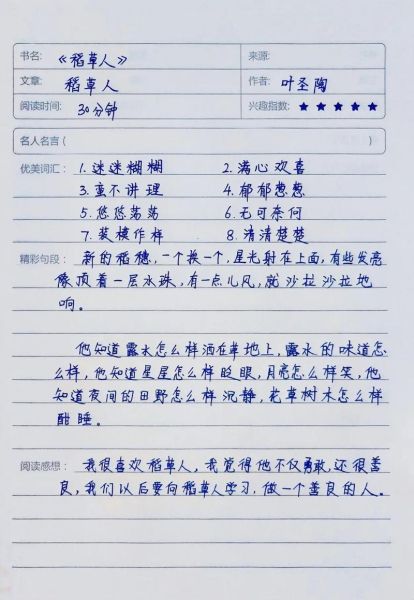 书名: 《稻草人》 来源:
文章: 稻草人 作者: 叶圣陶
阅读时间: 30分钟 兴趣指数: ★ ★ ★ ★ ★
名人名言 ( )
优美词汇: 1. 迷迷糊糊 2. 满心欢喜
3. 蛮不讲理 4. 郁郁葱葱
5. 悠悠荡荡 6. 无可奈何
7. 装模作样 8. 清清楚楚
精彩句段: 新的稻穗,一个挨一个,星光射在上面,有些发亮
像顶着一层水珠,有一点儿风,就沙拉沙拉地
响。
他知道露水怎么样洒在草地上,露水的味道怎
么样,他知道星星怎么样眨眼,月亮怎么样笑,他
知道夜间的田野怎么样沉静,花草树木怎么样
酣睡。
阅读感想: 我很喜欢稻草人,我觉得他不仅勇敢,还很善
良,我们以后要向稻草人学习,做一个善良的人。